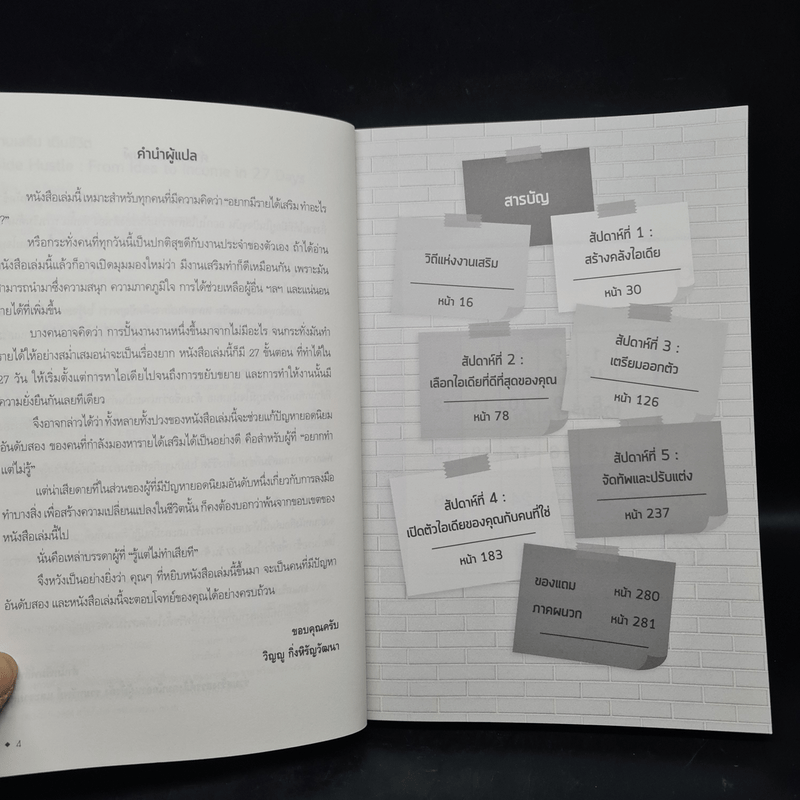 คำนำผู้แปล
หนังสือเล่มนี้ เหมาะสำหรับทุกคนที่มีความคิดว่า “อยากมีรายได้เสริม ทำอะไร
?”
หรือกระทั่งคนที่ทุกวันนี้เป็นปกติสุขดีกับงานประจำของตัวเอง ถ้าได้อ่าน
หนังสือเล่มนี้แล้วก็อาจเปิดมุมมองใหม่ว่า มีงานเสริมทำก็ดีเหมือนกัน เพราะมัน
สามารถนำมาซึ่งความสนุก ความภาคภูมิใจ การได้ช่วยเหลือผู้อื่น ฯลฯ และแน่นอน
รายได้ที่เพิ่มขึ้น
บางคนอาจคิดว่า การปั้นงานงานหนึ่งขึ้นมาจากไม่มีอะไร จนกระทั่งมันทำ
รายได้ให้อย่างสม่ำเสมอน่าจะเป็นเรื่องยาก หนังสือเล่มนี้ก็มี 27 ขั้นตอน ที่ทำได้ใน
27 วัน ให้เริ่มตั้งแต่การหาไอเดียไปจนถึงการขยับขยาย และการทำให้งานนั้นมี
ความยั่งยืนกันเลยทีเดียว
จึงอาจกล่าวได้ว่า ทั้งหลายทั้งปวงของหนังสือเล่มนี้จะช่วยแก้ปัญหายอดนิยม
อันดับสอง ของคนที่กำลังมองหารายได้เสริมได้เป็นอย่างดี คือสำหรับผู้ที่ “อยากทำ
แต่ไม่รู้”
แต่น่าเสียดายที่ในส่วนของผู้ที่มีปัญหายอดนิยมอันดับหนึ่งเกี่ยวกับการลงมือ
ทำบางสิ่ง เพื่อสร้างความเปลี่ยนแปลงในชีวิตนั้น ก็คงต้องบอกว่าพ้นจากขอบเขตของ
หนังสือเล่มนี้ไป
นั่นคือเหล่าบรรดาผู้ที่ “รู้แต่ไม่ทำเสียที”
จึงหวังเป็นอย่างยิ่งว่า คุณๆ ที่หยิบหนังสือเล่มนี้ขึ้นมา จะเป็นคนที่มีปัญหา
อันดับสอง และหนังสือเล่มนี้จะตอบโจทย์ของคุณได้อย่างครบถ้วน
ขอบคุณครับ
วิญญู กิ่งหิรัญวัฒนา
◆ 4
สารบัญ
วิถีแห่งงานเสริม
หน้า 16
สัปดาห์ที่ 1 :
สร้างคลังไอเดีย
หน้า 30
สัปดาห์ที่ 2 :
เลือกไอเดียที่ดีที่สุดของคุณ
หน้า 78
สัปดาห์ที่ 3 :
เตรียมออกตัว
หน้า 126
สัปดาห์ที่ 4 :
เปิดตัวไอเดียของคุณกับคนที่ใช่
หน้า 183
สัปดาห์ที่ 5 :
จัดทัพและปรับแต่ง
หน้า 237
ของแถม หน้า 280
ภาคผนวก หน้า 281